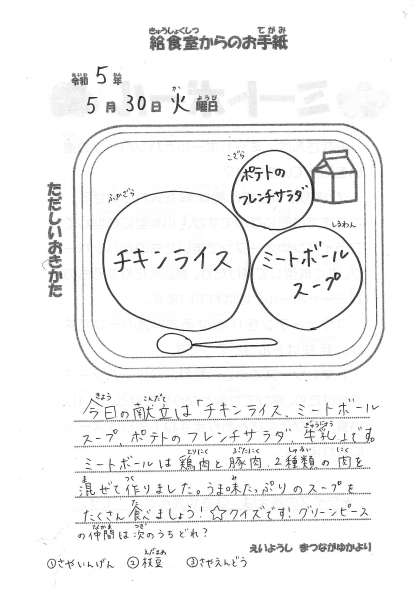 きゅうしょくしつ てがみ
給食室からのお手紙
れいわ ねん
令和 5 年
か ようび
5 月 30 日 火 曜日
ただしいおきかた
こざら
ポテトの
フレンチサラダ
ふかざら
チキンライス
しるわん
ミートボール
スープ
きょう こんだて
今日の献立は「チキンライス、ミートボール
ぎゅうにゅう
スープ、ポテトのフレンチサラダ、牛乳」です。
とりにく ぶたにく しゅるい にく
ミートボールは鶏肉と豚肉、2種類の肉を
ま つく み
混ぜて作りました。うま味たっぷりのスープを
た
たくさん食べましょう!☆クイズです!グリーンピース
なかま つぎ
の仲間は次のうちどれ?
えだまめ
①さやいんげん ②枝豆 ③さやえんどう
えいようし まつながゆかより